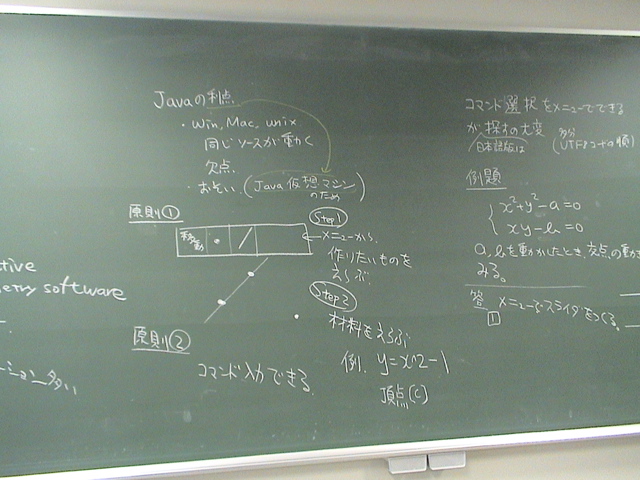 Javaの利点
・Win, Mac, unix
同じソースが動く
欠点
・おそい(Java仮想マシンのため)
原則①
移動
Step1
メニューから
作りたいものを
えらぶ
Step2
材料をえらぶ
例. y=x^2-1
頂点(c)
原則②
コマンド入力できる
tive
etry software
ーション多い
コマンド選択をメニューでできる
が探すの大変
日本語版は (多分UTFコードの順)
例題
x²+y²-a=0
xy-b=0
a,bを動かしたとき、交点の動き
みる。
答 メニューでスライダをつくる。
1